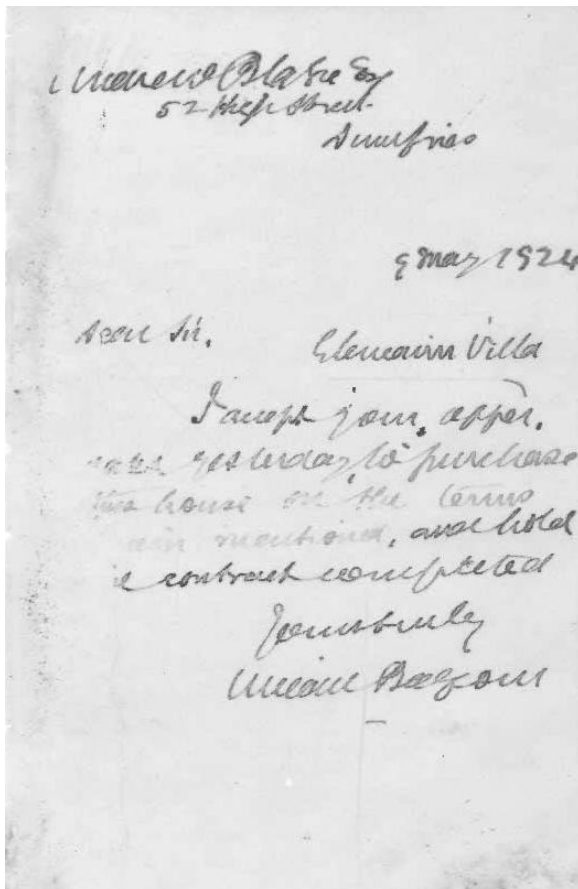 Blake Esq
52 High Street
Dumfries
9 May 1924
Dear Sir,
Glencairn Villa
I accept your offer,
yesterday, to purchase
house on the terms
mentioned, and hold
contract completed
Yours truly